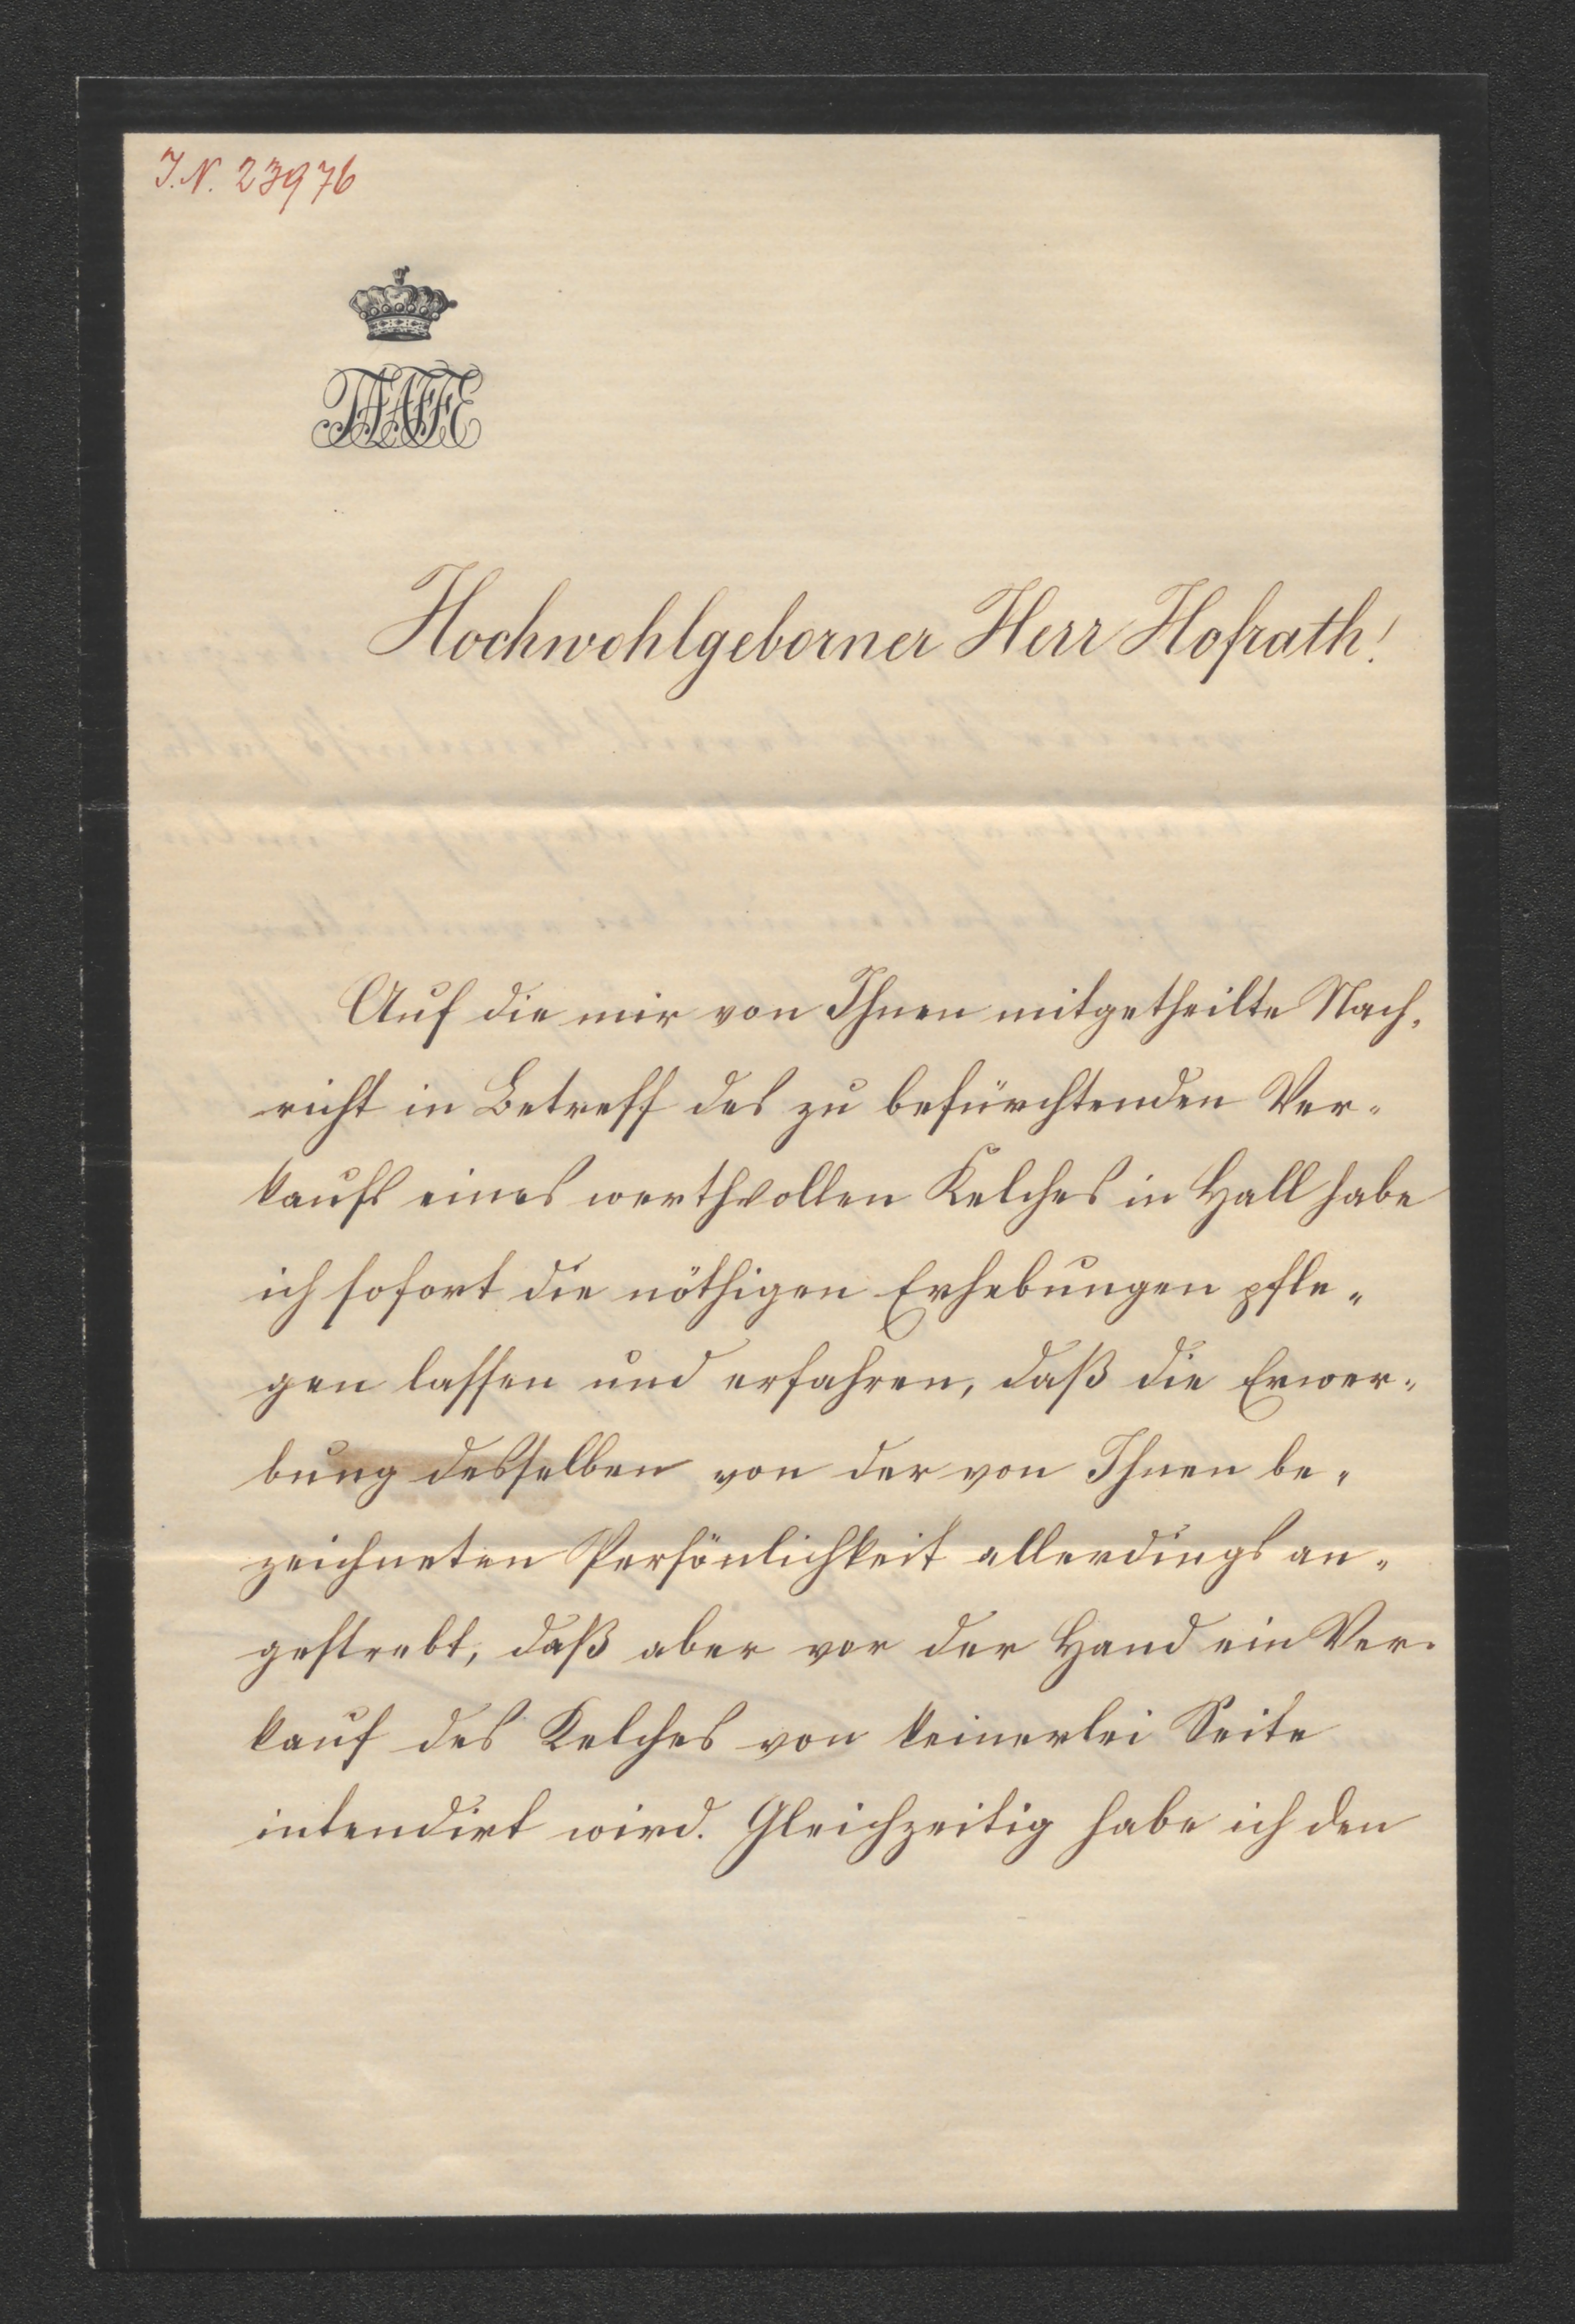 J. N. 23976
TAAFFE
Hochwohlgeborner Herr Hofrath!
Auf die mir von Ihnen mitgetheilte Nach-
richt in Betreff des zu befürchtenden Ver-
kaufs eines werthvollen Kelches in Hall habe
ich sofort die nöthigen Erhebungen pfle-
gen lassen und erfahren, daß die Erwer-
bung desselben von der von Ihnen be-
zeichneten Persönlichkeit allerdings an-
gestrebt, daß aber vor der Hand ein Ver-
kauf des Kelches von keinerlei Seite
intendirt wird. Gleichzeitig habe ich den